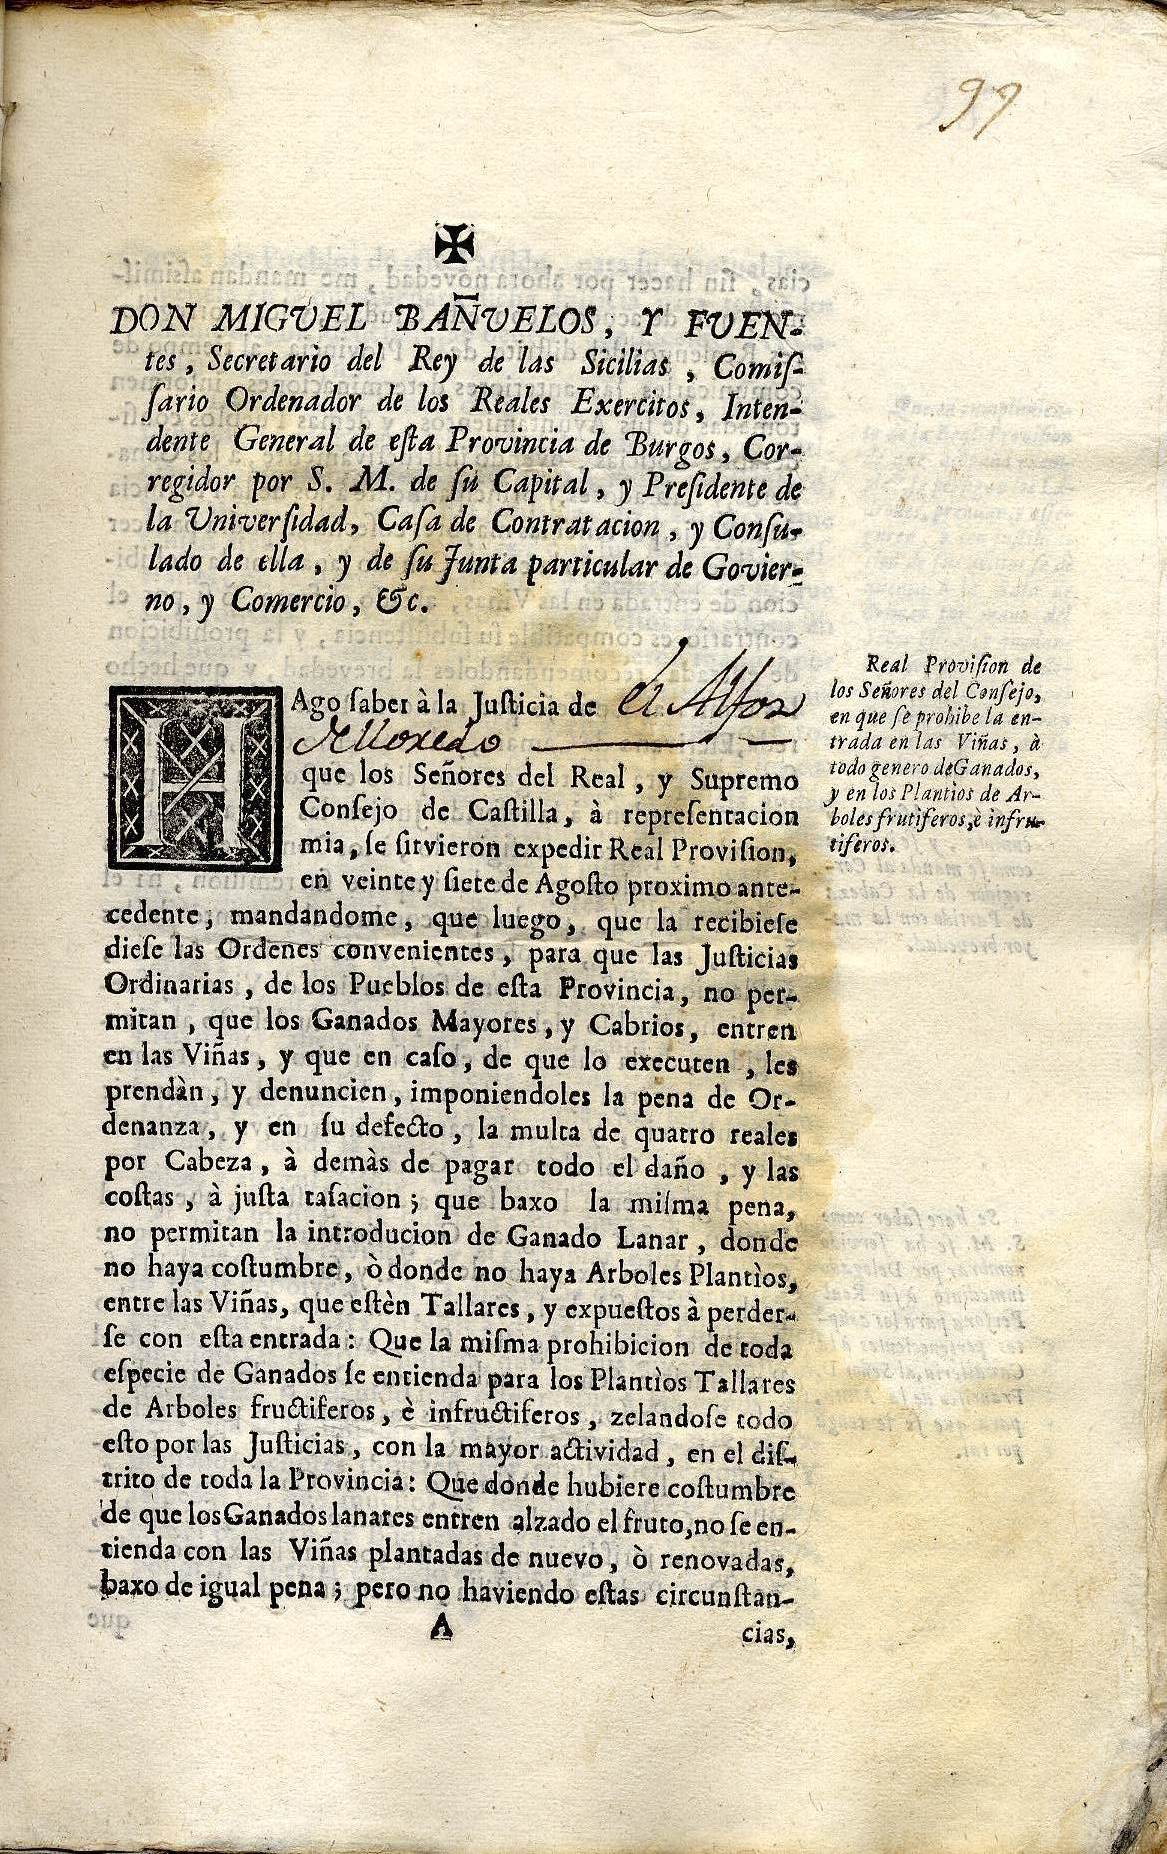 99
✠
DON MIGUEL BAÑUELOS, Y FUEN-
tes, Secretario del Rey de las Sicilias, Comiſ-
ſario Ordenador de los Reales Exercitos, Inten-
dente General de eſta Provincia de Burgos, Cor-
regidor por S. M. de ſu Capital, y Preſidente de
la Univerſidad, Caſa de Contratacion, y Conſu-
lado de ella, y de ſu Junta particular de Govier-
no, y Comercio, &c.
HAgo ſaber à la Juſticia de el Alfoz
de Lloredo
que los Señores del Real, y Supremo
Conſejo de Caſtilla, à repreſentacion
mia, ſe ſirvieron expedir Real Proviſion,
en veinte y ſiete de Agoſto proximo ante-
cedente, mandandome, que luego, que la recibieſe
dieſe las Ordenes convenientes, para que las Juſticias
Ordinarias, de los Pueblos de eſta Provincia, no per-
mitan, que los Ganados Mayores, y Cabrios, entren
en las Viñas, y que en caſo, de que lo executen, les
prendàn, y denuncien, imponiendoles la pena de Or-
denanza, y en ſu defecto, la multa de quatro reales
por Cabeza, à demàs de pagar todo el daño, y las
coſtas, à juſta taſacion; que baxo la miſma pena,
no permitan la introducion de Ganado Lanar, donde
no haya coſtumbre, ò donde no haya Arboles Plantìos,
entre las Viñas, que eſtèn Tallares, y expueſtos à perder-
ſe con eſta entrada: Que la miſma prohibicion de toda
eſpecie de Ganados ſe entienda para los Plantìos Tallares
de Arboles fructiferos, è infructiferos, zelandoſe todo
eſto por las Juſticias, con la mayor actividad, en el diſ-
trito de toda la Provincia: Que donde hubiere coſtumbre
de que los Ganados lanares entren alzado el fruto, no ſe en-
tienda con las Viñas plantadas de nuevo, ò renovadas,
baxo de igual pena; pero no haviendo eſtas circunſtan-
A cias,
Real Proviſion de
los Señores del Conſejo,
en que ſe prohibe la en-
trada en las Viñas, à
todo genero de Ganados,
y en los Plantìos de Ar-
boles frutiferos, è infru-
tiferos.